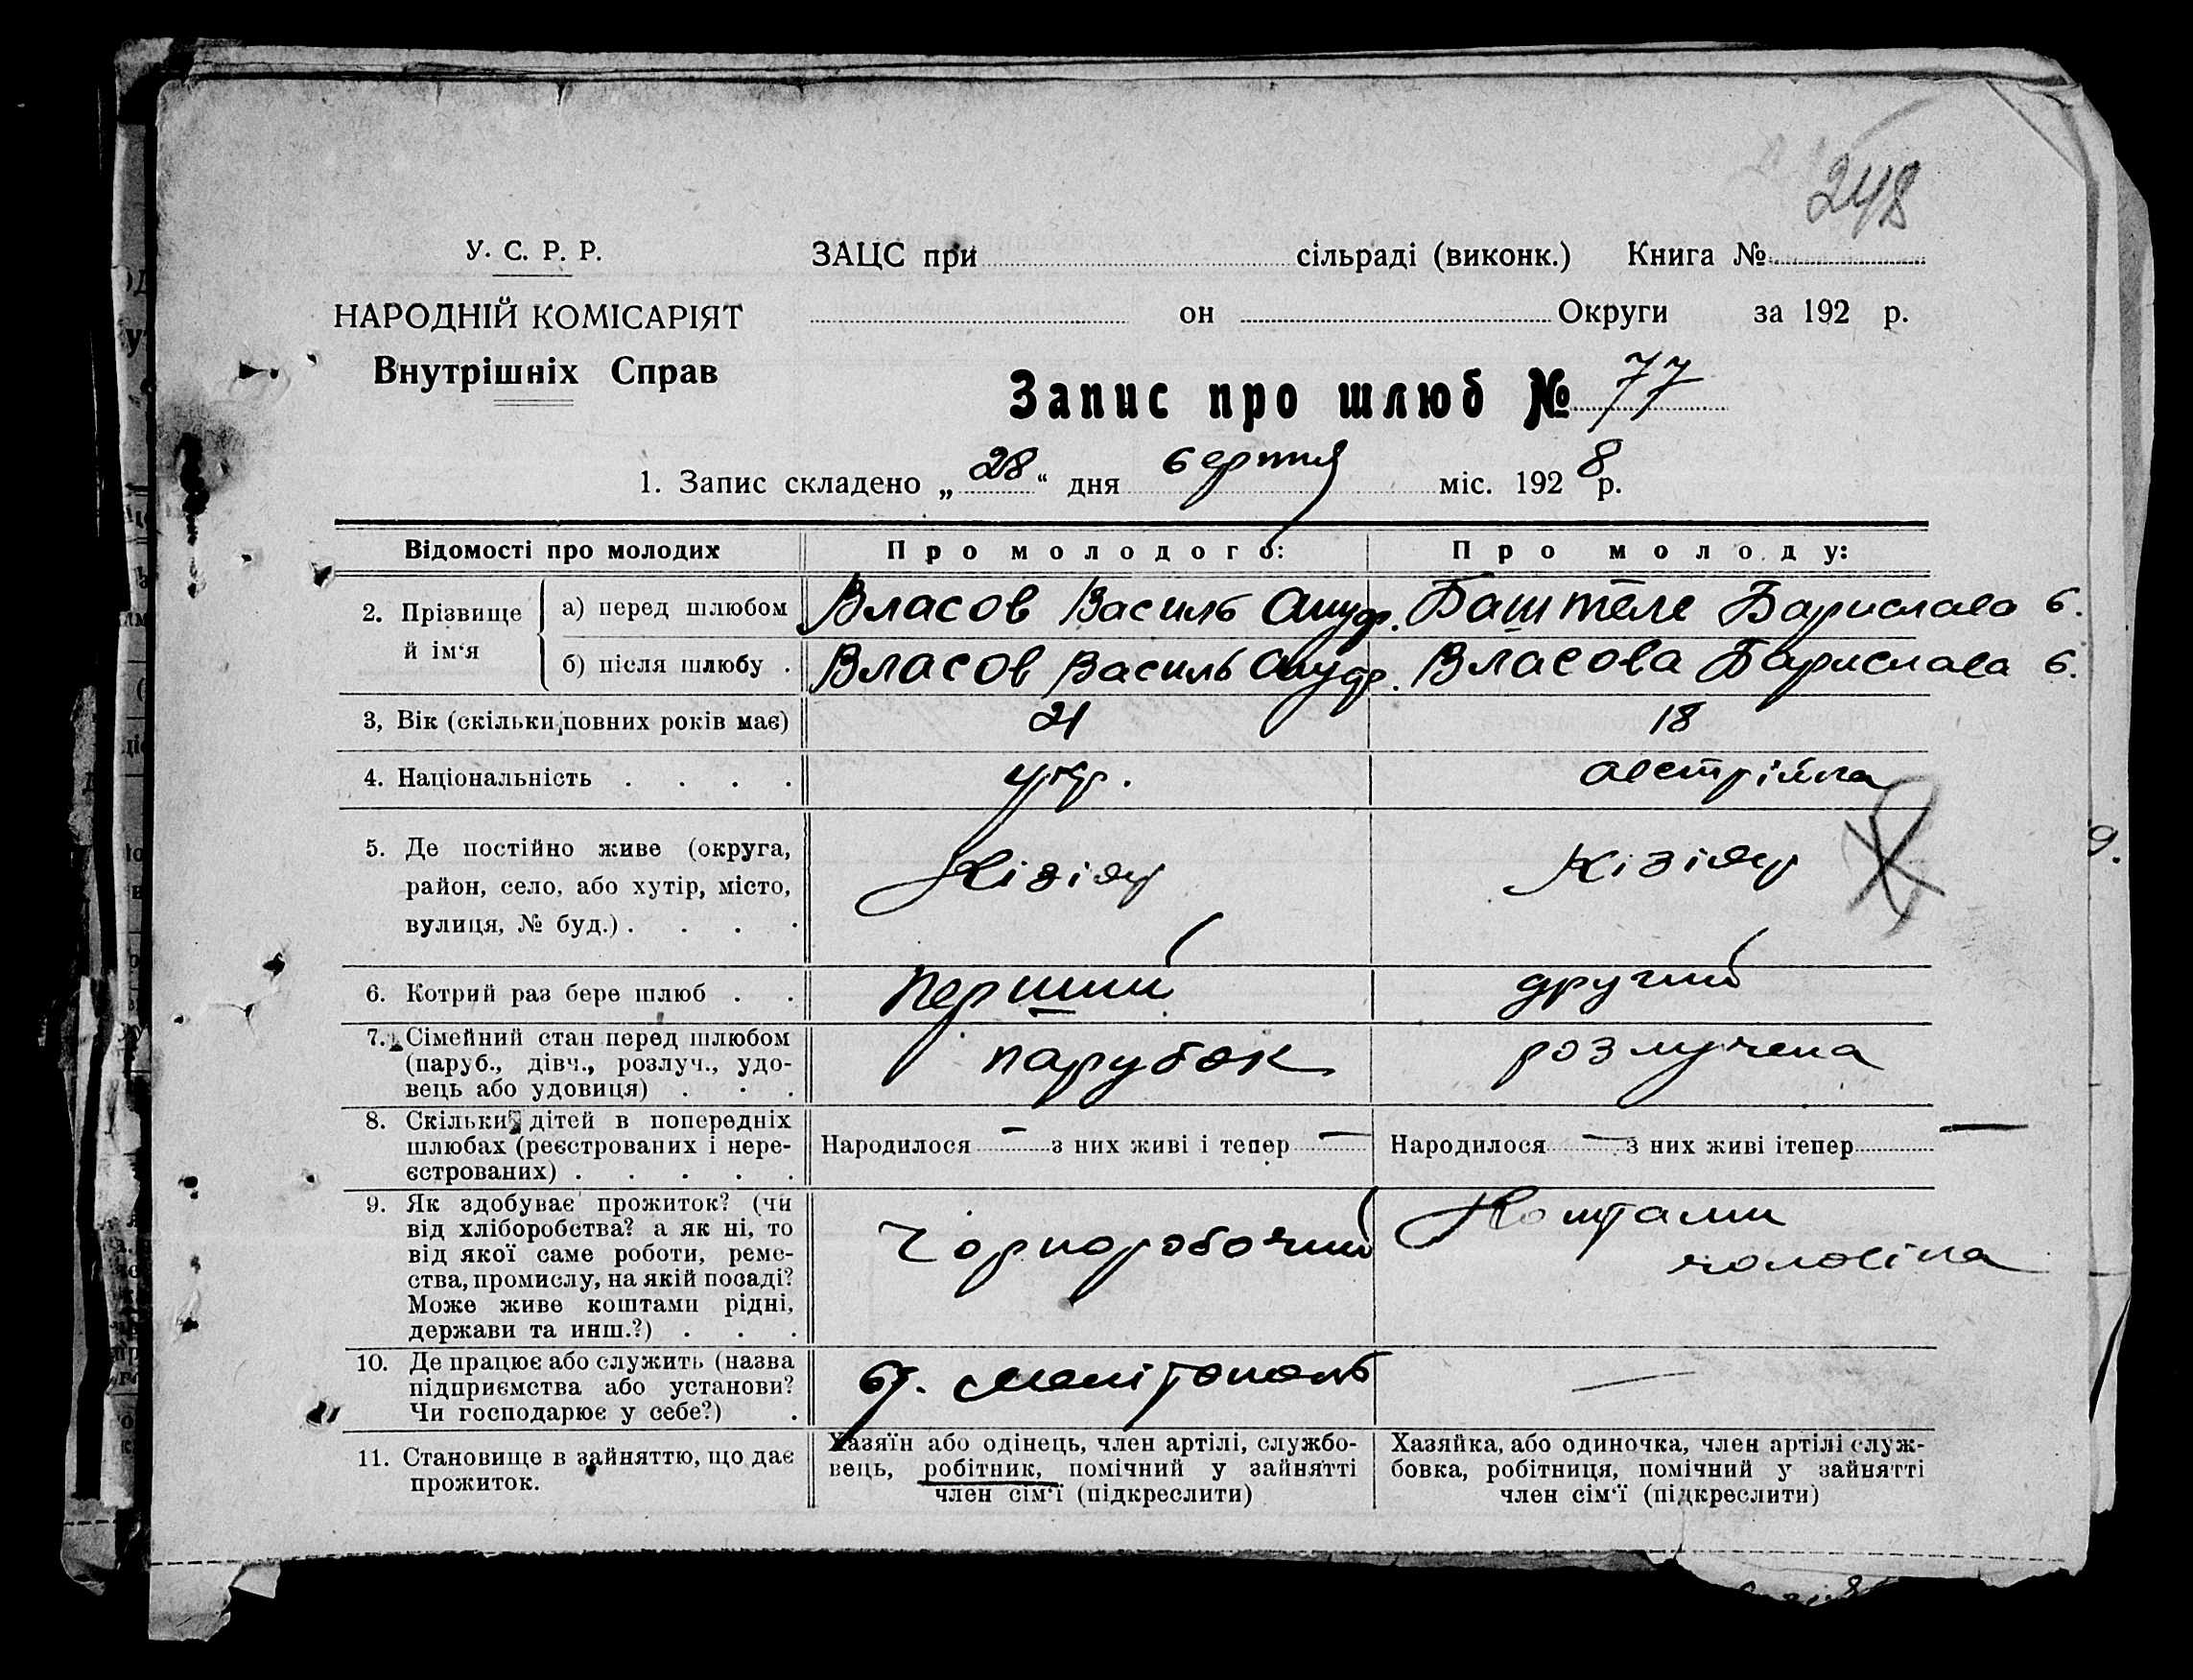 248
У. С. Р. Р.
НАРОДНІЙ КОМІСАРІЯТ
Внутрішніх Справ
ЗАЦС при сільраді (виконк.) Книга №
он Округи за 192 р.
Запис про шлюб № 77
1. Запис складено „ 28 “ дня серпня міс. 192 8 р.
Відомості про молодих
Про молодого:
Про молоду:
2. Прізвище й ім‘я
а) перед шлюбом
Власов Василь
Баштеле Барислава
б) після шлюбу .
Власов Василь
Власова Барислава
3, Вік (скільки повних років має)
21
18
4. Національність . . . .
укр.
австрійка
5. Де постійно живе (округа,
район, село, або хутір, місто,
вулиця, № буд.) . . . .
Кізіяр
Кізіяр
6. Котрий раз бере шлюб . .
перший
другий
7. Сімейний стан перед шлюбом
(паруб., дівч., розлуч., удо-
вець або удовиця) . . .
парубок
розлучена
8. Скільки дітей в попередніх
шлюбах (реєстрованих і нере-
єстрованих) . . . . .
Народилося — з них живі і тепер —
Народилося — з них живі ітепер —
9. Як здобуває прожиток? (чи
від хліборобства? а як ні, то
від якої саме роботи, реме-
ства, промислу, на якій посаді?
Може живе коштами рідні,
держави та инш.?) . . .
Чорноробочий
Коштами
чоловіка
10. Де працює або служить (назва
підприємства або установи?
Чи господарює у себе?) .
Мелітополь
—
11. Становище в зайняттю, що дає
прожиток.
Хазяїн або одінець, член артілі, службо-
вець, робітник, помічний у зайнятті
член сім‘ї (підкреслити)
Хазяйка, або одиночка, член артілі служ-
бовка, робітниця, помічний у зайнятті
член сім‘ї (підкреслити)